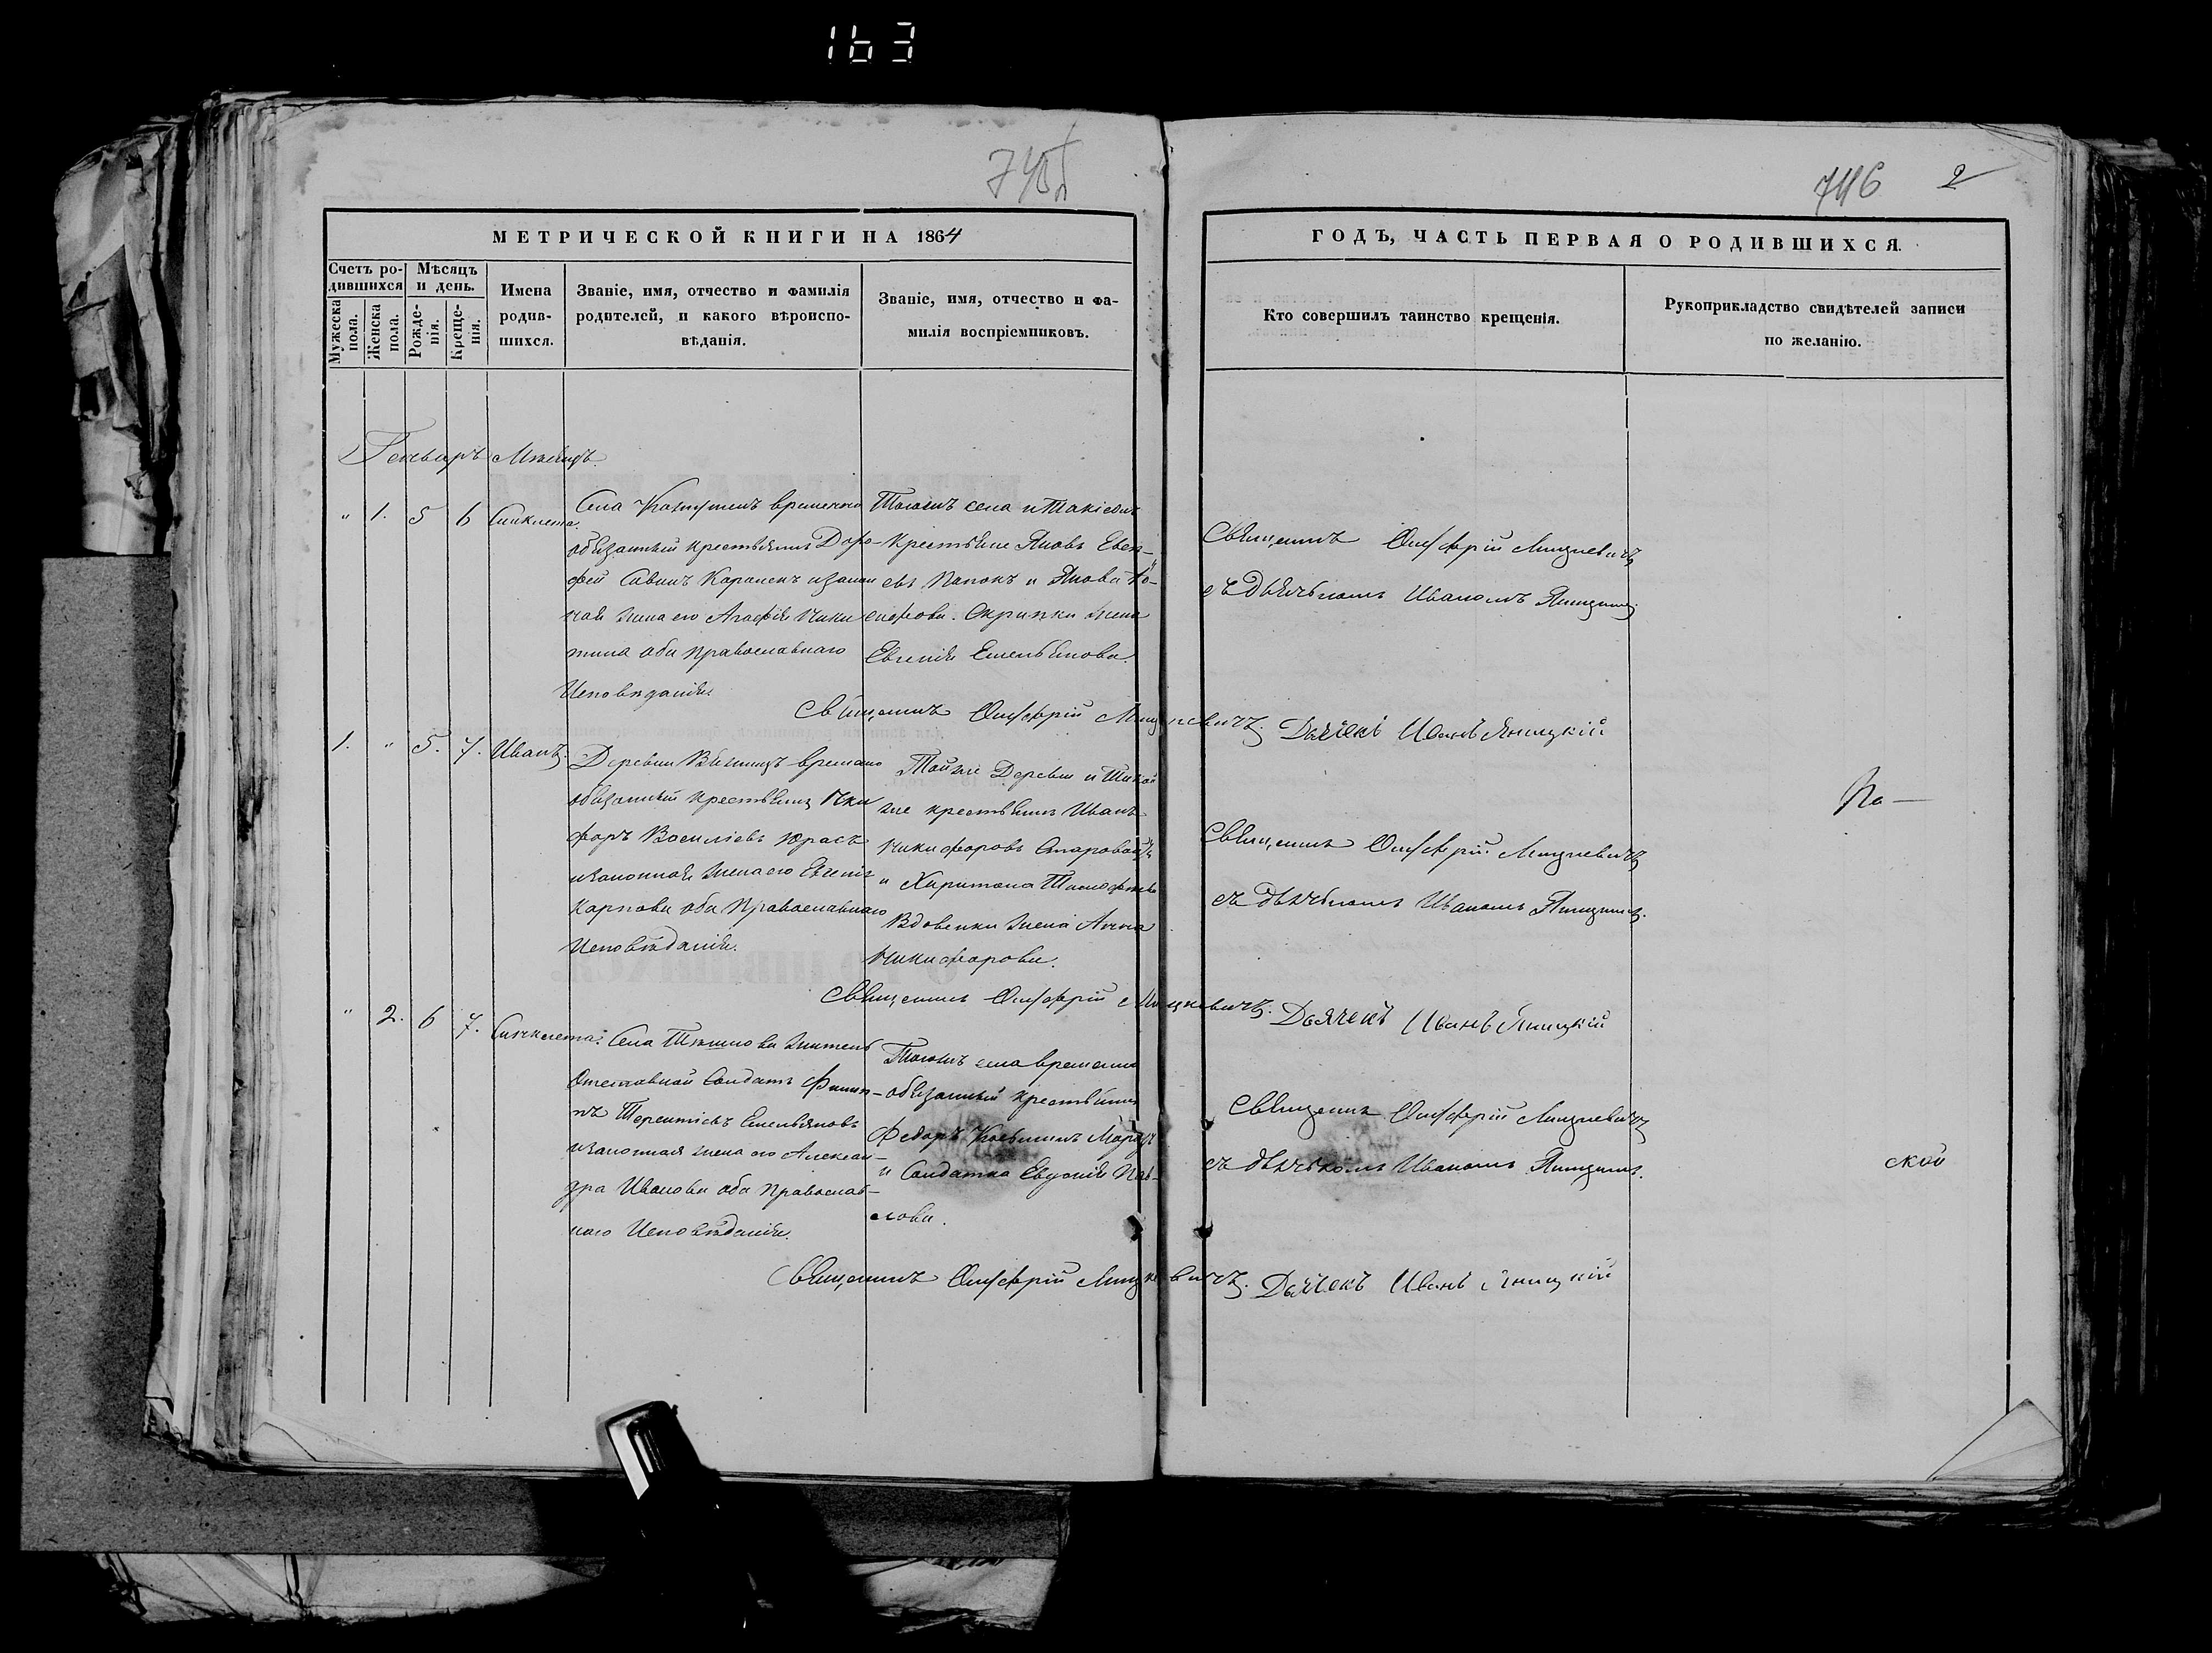 163
745
746 2
МЕТРИЧЕСКОЙ КНИГИ НА 1864
ГОДЪ, ЧАСТЬ ПЕРВАЯ О РОДИВШИХСЯ.
Счетъ ро-
дившихся
Мужеска
пола.
Женска
пола.
Мѣсяцъ
и день.
Рожде-
нія.
Креще-
нія.
Имена
родив-
шихся.
Званіе, имя, отчество и фамилія
родителей, и какого вѣроиспо-
вѣданія.
Званіе, имя, отчество и фа-
милія воспріемниковъ.
Кто совершилъ таинство крещенія.
Рукоприкладство свидѣтелей записи
по желанію.
Генваръ Мѣсяцъ.
" 1. 5 6 Синклета.
Села временно
обязанный крестьянинъ Доро-
фей Савинъ Карапенъ изакон
ная жена его Агафія Ники
тина оба православнаго
Исповѣданія.
Тогожъ села и Такіежъ
Крестьяне Яковъ
евъ Папокъ и Якова Ѳо-
Скрипки жена
Евгенія Емельянова.
Священникъ Онуфрій Мицкевичъ
съ дьячькомъ Иваномъ Яницкимъ
Священникъ Онуфрій Мицкевичъ. Дьячекъ Иванъ Яницкій
1. " 5. 7. Иванъ.
Деревни временно
обязанный крестьянинъ Ники
форъ Василіевъ Юрасъ
изаконная жена его Евгенія
Карпова оба Православнаго
Исповѣданія.
Тойже Деревни и Такой
же крестьянинъ Иванъ
Никифоровъ
и Харитона Тимофѣева
Вдовенки жена Анна
Никифорова.
Священникъ Онуфрій Мицкевичъ
съ дьячькомъ Иваномъ Яницкимъ.
По —
Священникъ Онуфрій Мицкевичъ. Дьячекъ Иванъ Яницкій
" 2. 6 7. Синклета.
Села житель
Отставной Солдатъ Филип-
пъ Терентіевъ Емельяновъ
изаконная жена его Алексан-
дра Иванова оба Православ-
наго Исповѣданія.
Тогожъ села временно
обязанный крестьянинъ
Федоръ Козьминъ Морозъ
и Солдатка Евдокія Пав-
лова.
Священникъ Онуфрій Мицкевичъ
съ дьячькомъ Иваномъ Яницкимъ.
ской
Священникъ Онуфрій Мицкевичъ. Дьячекъ Иванъ Яницкій